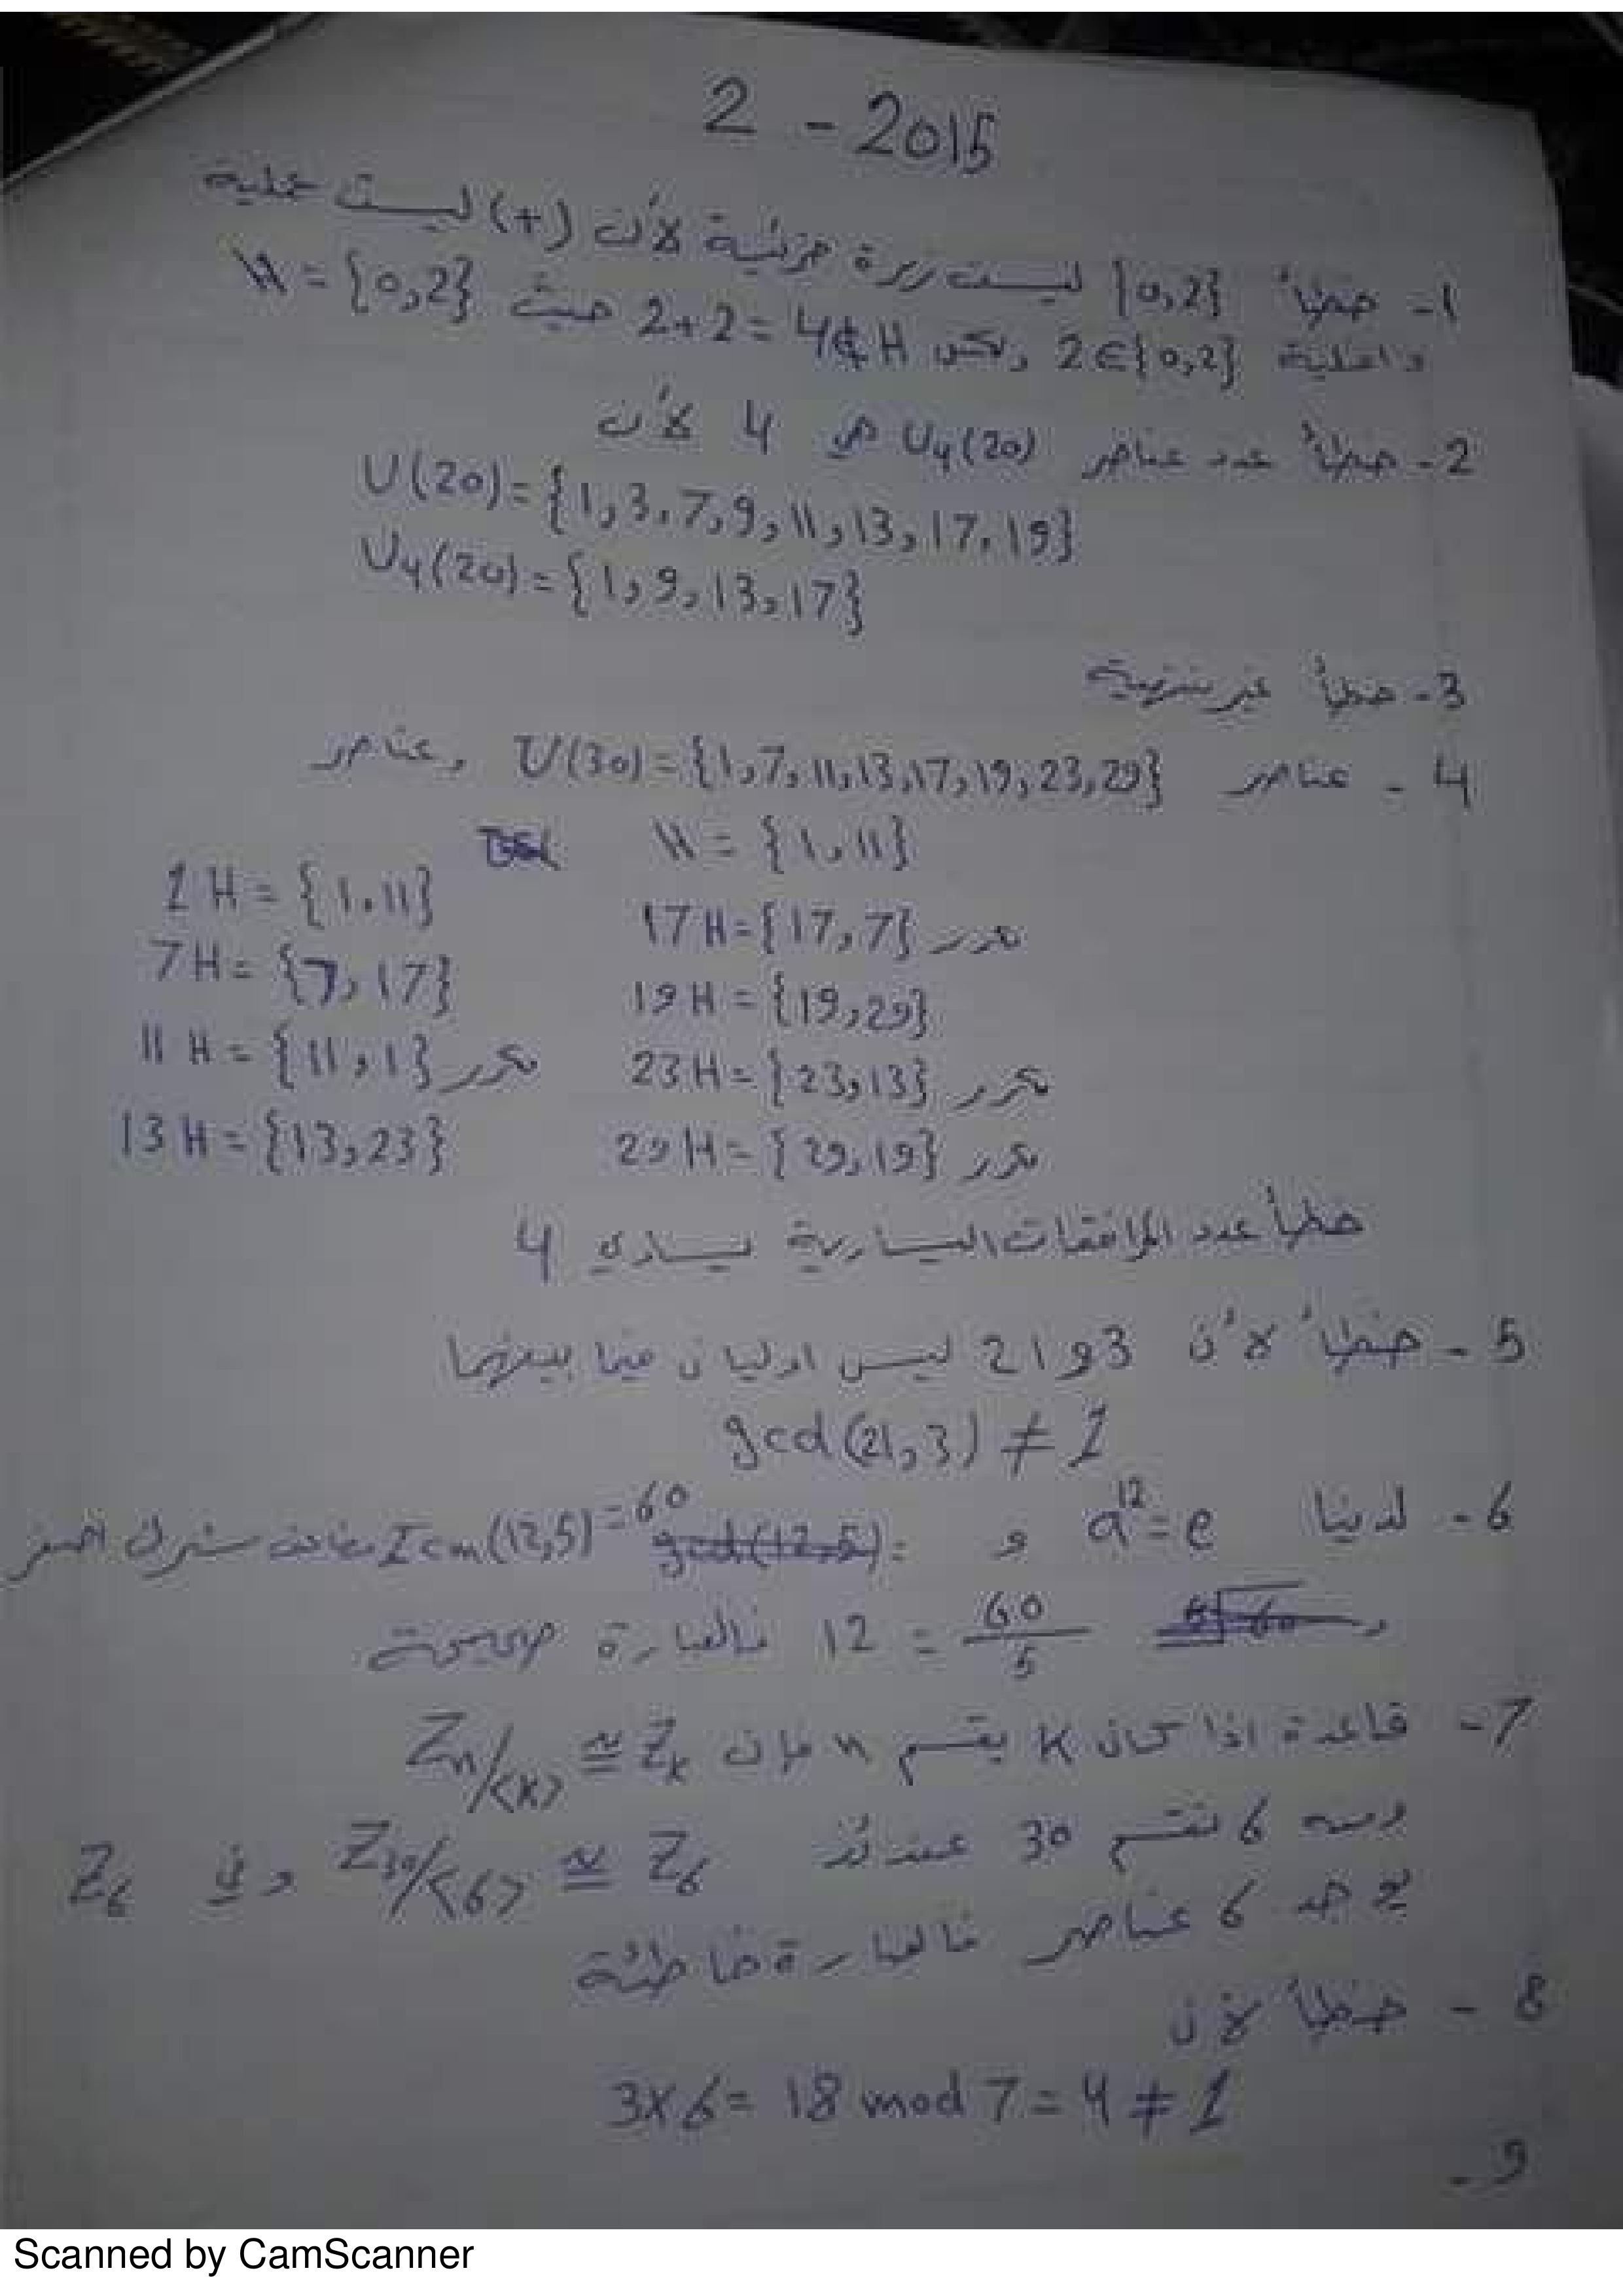 2 - 2015
1- خطأ {0,2} ليست زمرة جزئية لأن (+) ليست عملية
داخلية 2∈{0,2} ولكن 2+2=4∉H حيث H={0,2}
2- خطأ عدد عناصر U4(20) هي 4 لأن
U(20)={1,3,7,9,11,13,17,19}
U4(20)={1,9,13,17}
3- خطأ غير منتهية
4- عناصر U(30)={1,7,11,13,17,19,23,29} وعناصر
H={1,11}
1H={1,11}
7H={7,17}
11H={11,1} مكرر
13H={13,23}
17H={17,7} مكرر
19H={19,29}
23H={23,13} مكرر
29H={29,19} مكرر
خطأ عدد المرافقات اليسارية يساوي 4
5- خطأ لأن 3 و 21 ليس اوليان فيما بينهما
gcd(21,3)≠1
6- لدينا a^12=e و Lcm(12,5)=60 مضاعف مشترك اصغر
و 60/5 = 12 فالعبارة صحيحة
7- قاعدة اذا كان K يقسم n فإن Zn/<K> ≅ Zk
ومنه 6 تقسم 30 عندئذ Z30/<6> ≅ Z6 وفي Z6
يوجد 6 عناصر فالعبارة خاطئة
8- خطأ لأن
3×6=18 mod 7=4≠1
9-
Scanned by CamScanner